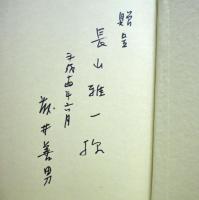 贈呈
長山雅一様
平成十四年六月
嶽井善男